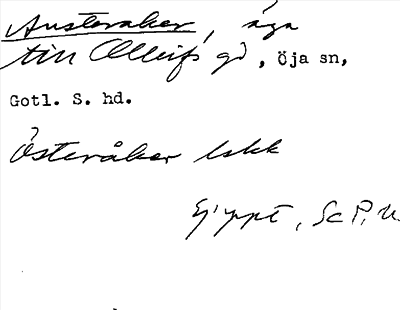 Austeraker, äga
till Olleifs gd, Öja sn,
Gotl. S. hd.
Österåker lskk
Ej uppt, Sc P. U.